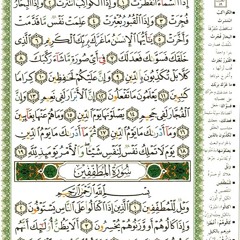 إِذَا السَّمَاءُ انفَطَرَتْ ۝ وَإِذَا الْكَوَاكِبُ انتَثَرَتْ ۝ وَإِذَا الْبِحَارُ
فُجِّرَتْ ۝ وَإِذَا الْقُبُورُ بُعْثِرَتْ ۝ عَلِمَتْ نَفْسٌ مَّا قَدَّمَتْ
وَأَخَّرَتْ ۝ يَا أَيُّهَا الْإِنسَانُ مَا غَرَّكَ بِرَبِّكَ الْكَرِيمِ ۝ الَّذِي
خَلَقَكَ فَسَوَّاكَ فَعَدَلَكَ ۝ فِي أَيِّ صُورَةٍ مَّا شَاءَ رَكَّبَكَ ۝
كَلَّا بَلْ تُكَذِّبُونَ بِالدِّينِ ۝ وَإِنَّ عَلَيْكُمْ لَحَافِظِينَ ۝ كِرَامًا
كَاتِبِينَ ۝ يَعْلَمُونَ مَا تَفْعَلُونَ ۝ إِنَّ الْأَبْرَارَ لَفِي نَعِيمٍ ۝ وَإِنَّ
الْفُجَّارَ لَفِي جَحِيمٍ ۝ يَصْلَوْنَهَا يَوْمَ الدِّينِ ۝ وَمَا هُمْ عَنْهَا بِغَائِبِينَ
۝ وَمَا أَدْرَاكَ مَا يَوْمُ الدِّينِ ۝ ثُمَّ مَا أَدْرَاكَ مَا يَوْمُ الدِّينِ
۝ يَوْمَ لَا تَمْلِكُ نَفْسٌ لِّنَفْسٍ شَيْئًا وَالْأَمْرُ يَوْمَئِذٍ لِّلَّهِ ۝
سُورَةُ الْمُطَفِّفِينَ
بِسْمِ اللَّهِ الرَّحْمَٰنِ الرَّحِيمِ
وَيْلٌ لِّلْمُطَفِّفِينَ ۝ الَّذِينَ إِذَا اكْتَالُوا عَلَى النَّاسِ يَسْتَوْفُونَ ۝
وَإِذَا كَالُوهُمْ أَو وَّزَنُوهُمْ يُخْسِرُونَ ۝ أَلَا يَظُنُّ أُولَٰئِكَ أَنَّهُم